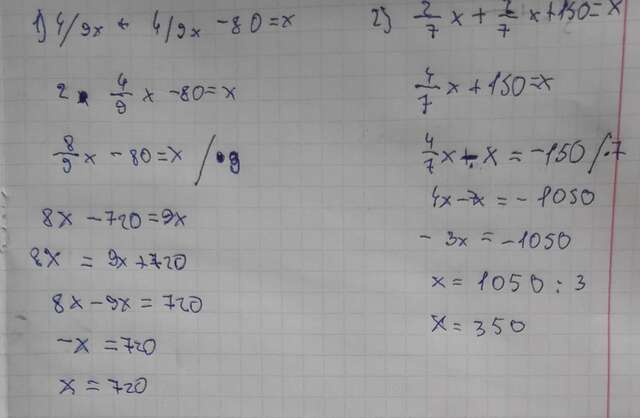 1) 4/9x + 4/9x - 80 = x
2 · 4/9 x - 80 = x
8/9 x - 80 = x / ·9
8x - 720 = 9x
8x = 9x + 720
8x - 9x = 720
- x = 720
x = 720
2) 2/7 x + 2/7 x + 150 = x
4/7 x + 150 = x
4/7 x - x = -150 / ·7
4x - 7x = - 1050
- 3x = - 1050
x = 1050 : 3
x = 350